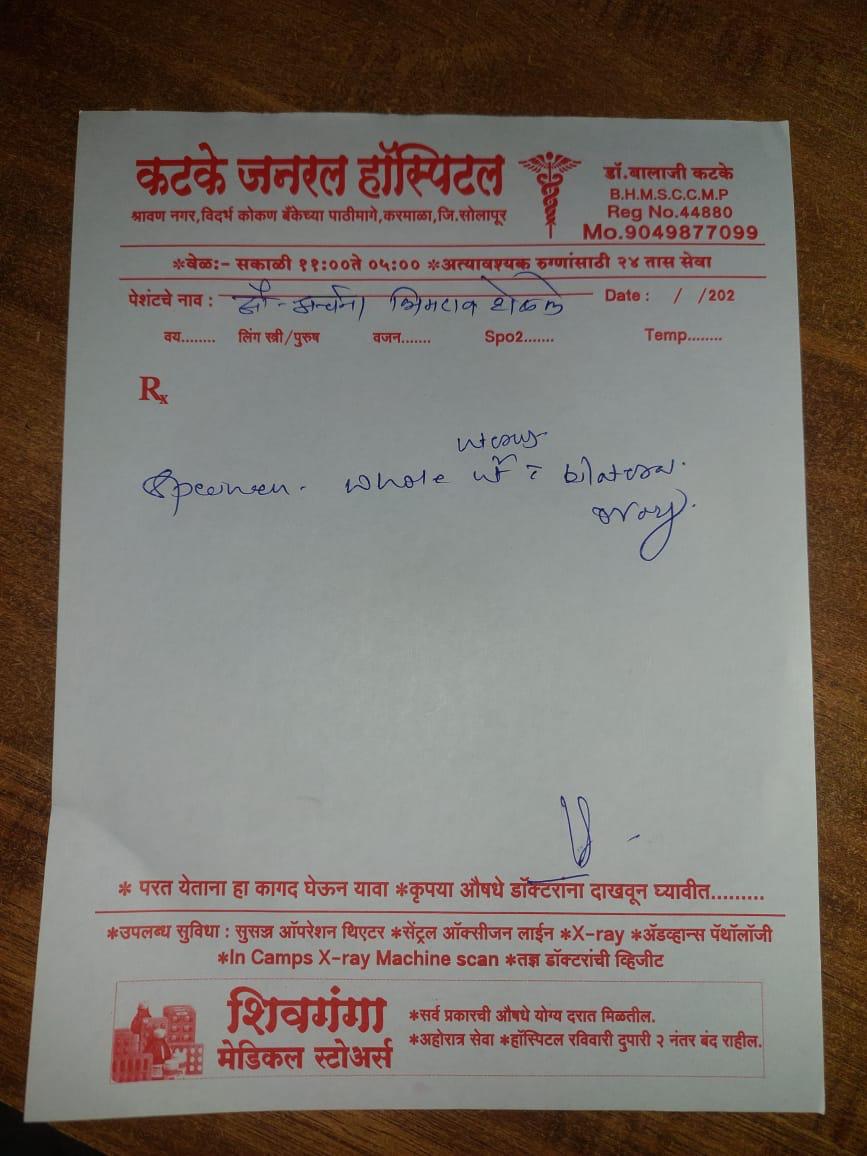 कटके जनरल हॉस्पिटल
श्रावण नगर,विदर्भ कोकण बँकेच्या पाठीमागे,करमाळा,जि.सोलापूर
डॉ.बालाजी कटके
B.H.M.S.C.C.M.P
Reg No.44880
Mo.9049877099
*वेळ:- सकाळी ११:००ते ०५:०० *अत्यावश्यक रुग्णांसाठी २४ तास सेवा
पेशंटचे नाव : सौ-अर्चना भिमराव Date : / /202
वय........ लिंग स्त्री/पुरुष वजन....... Spo2....... Temp........
Rx
uterus
Specimen. whole bilateral.
ovary.
* परत येताना हा कागद घेऊन यावा *कृपया औषधे डॉक्टरांना दाखवून घ्यावीत.........
*उपलब्ध सुविधा : सुसज्ज ऑपरेशन थिएटर *सेंट्रल ऑक्सीजन लाईन *X-ray *ॲडव्हान्स पॅथॉलॉजी
*In Camps X-ray Machine scan *तज्ञ डॉक्टरांची व्हिजीट
शिवगंगा
मेडिकल स्टोअर्स
*सर्व प्रकारची औषधे योग्य दरात मिळतील.
*अहोरात्र सेवा *हॉस्पिटल रविवारी दुपारी २ नंतर बंद राहील.